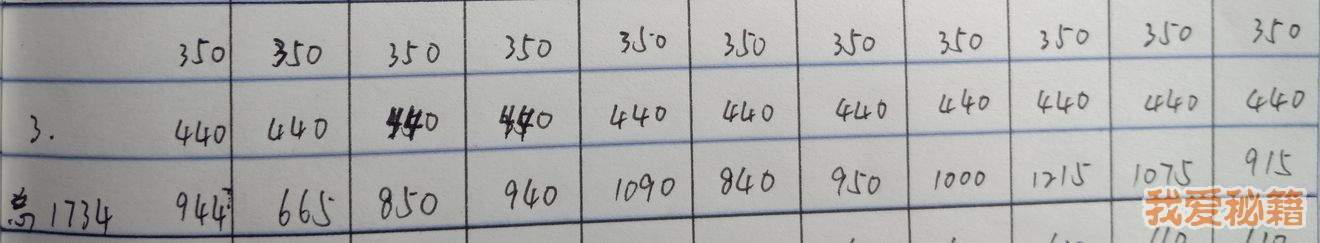 350 350 350 350 350 350 350 350 350 350 350
3. 440 440 440 440 440 440 440 440 440 440 440
总 1734 944 665 850 940 1090 840 950 1000 1215 1075 915
我爱秘籍